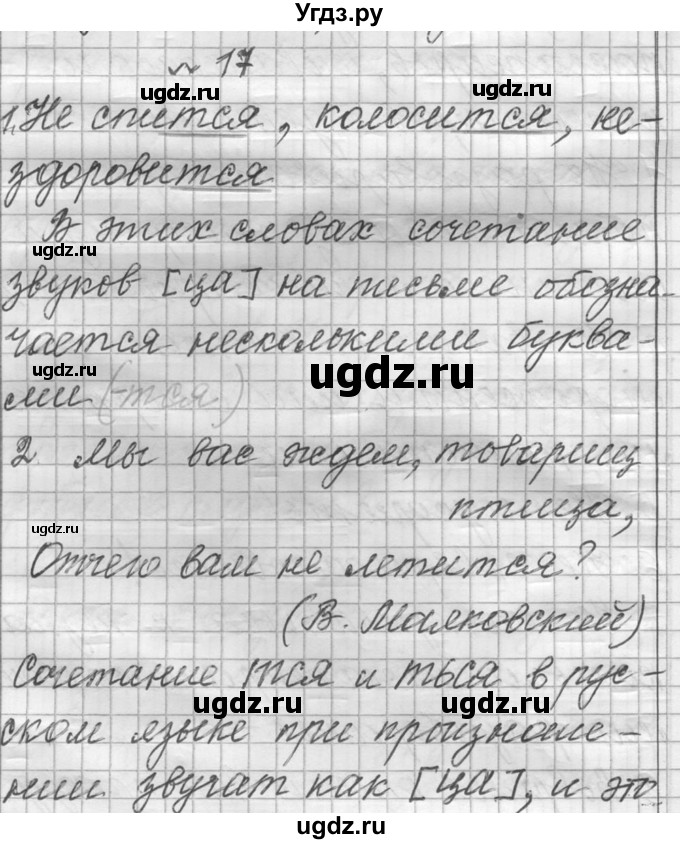 Угдз.ру
№ 17
ugdz.ru ugdz.ru
1. Не спится, колосится, не-
здоровится
В этих словах сочетание
ugdz.ru
звуков [ца] на письме обозна-
чается несколькими буква-
ugdz.ru
ми (-тся)
2 Мы вас ждем, товарищ
птица,
ugdz.ru
Отчего вам не летится?
(В. Маяковский)
Сочетание тся и ться в рус-
ugdz.ru ugdz.ru
ском языке при произноше-
нии звучат как [ца], и это
ugdz.ru